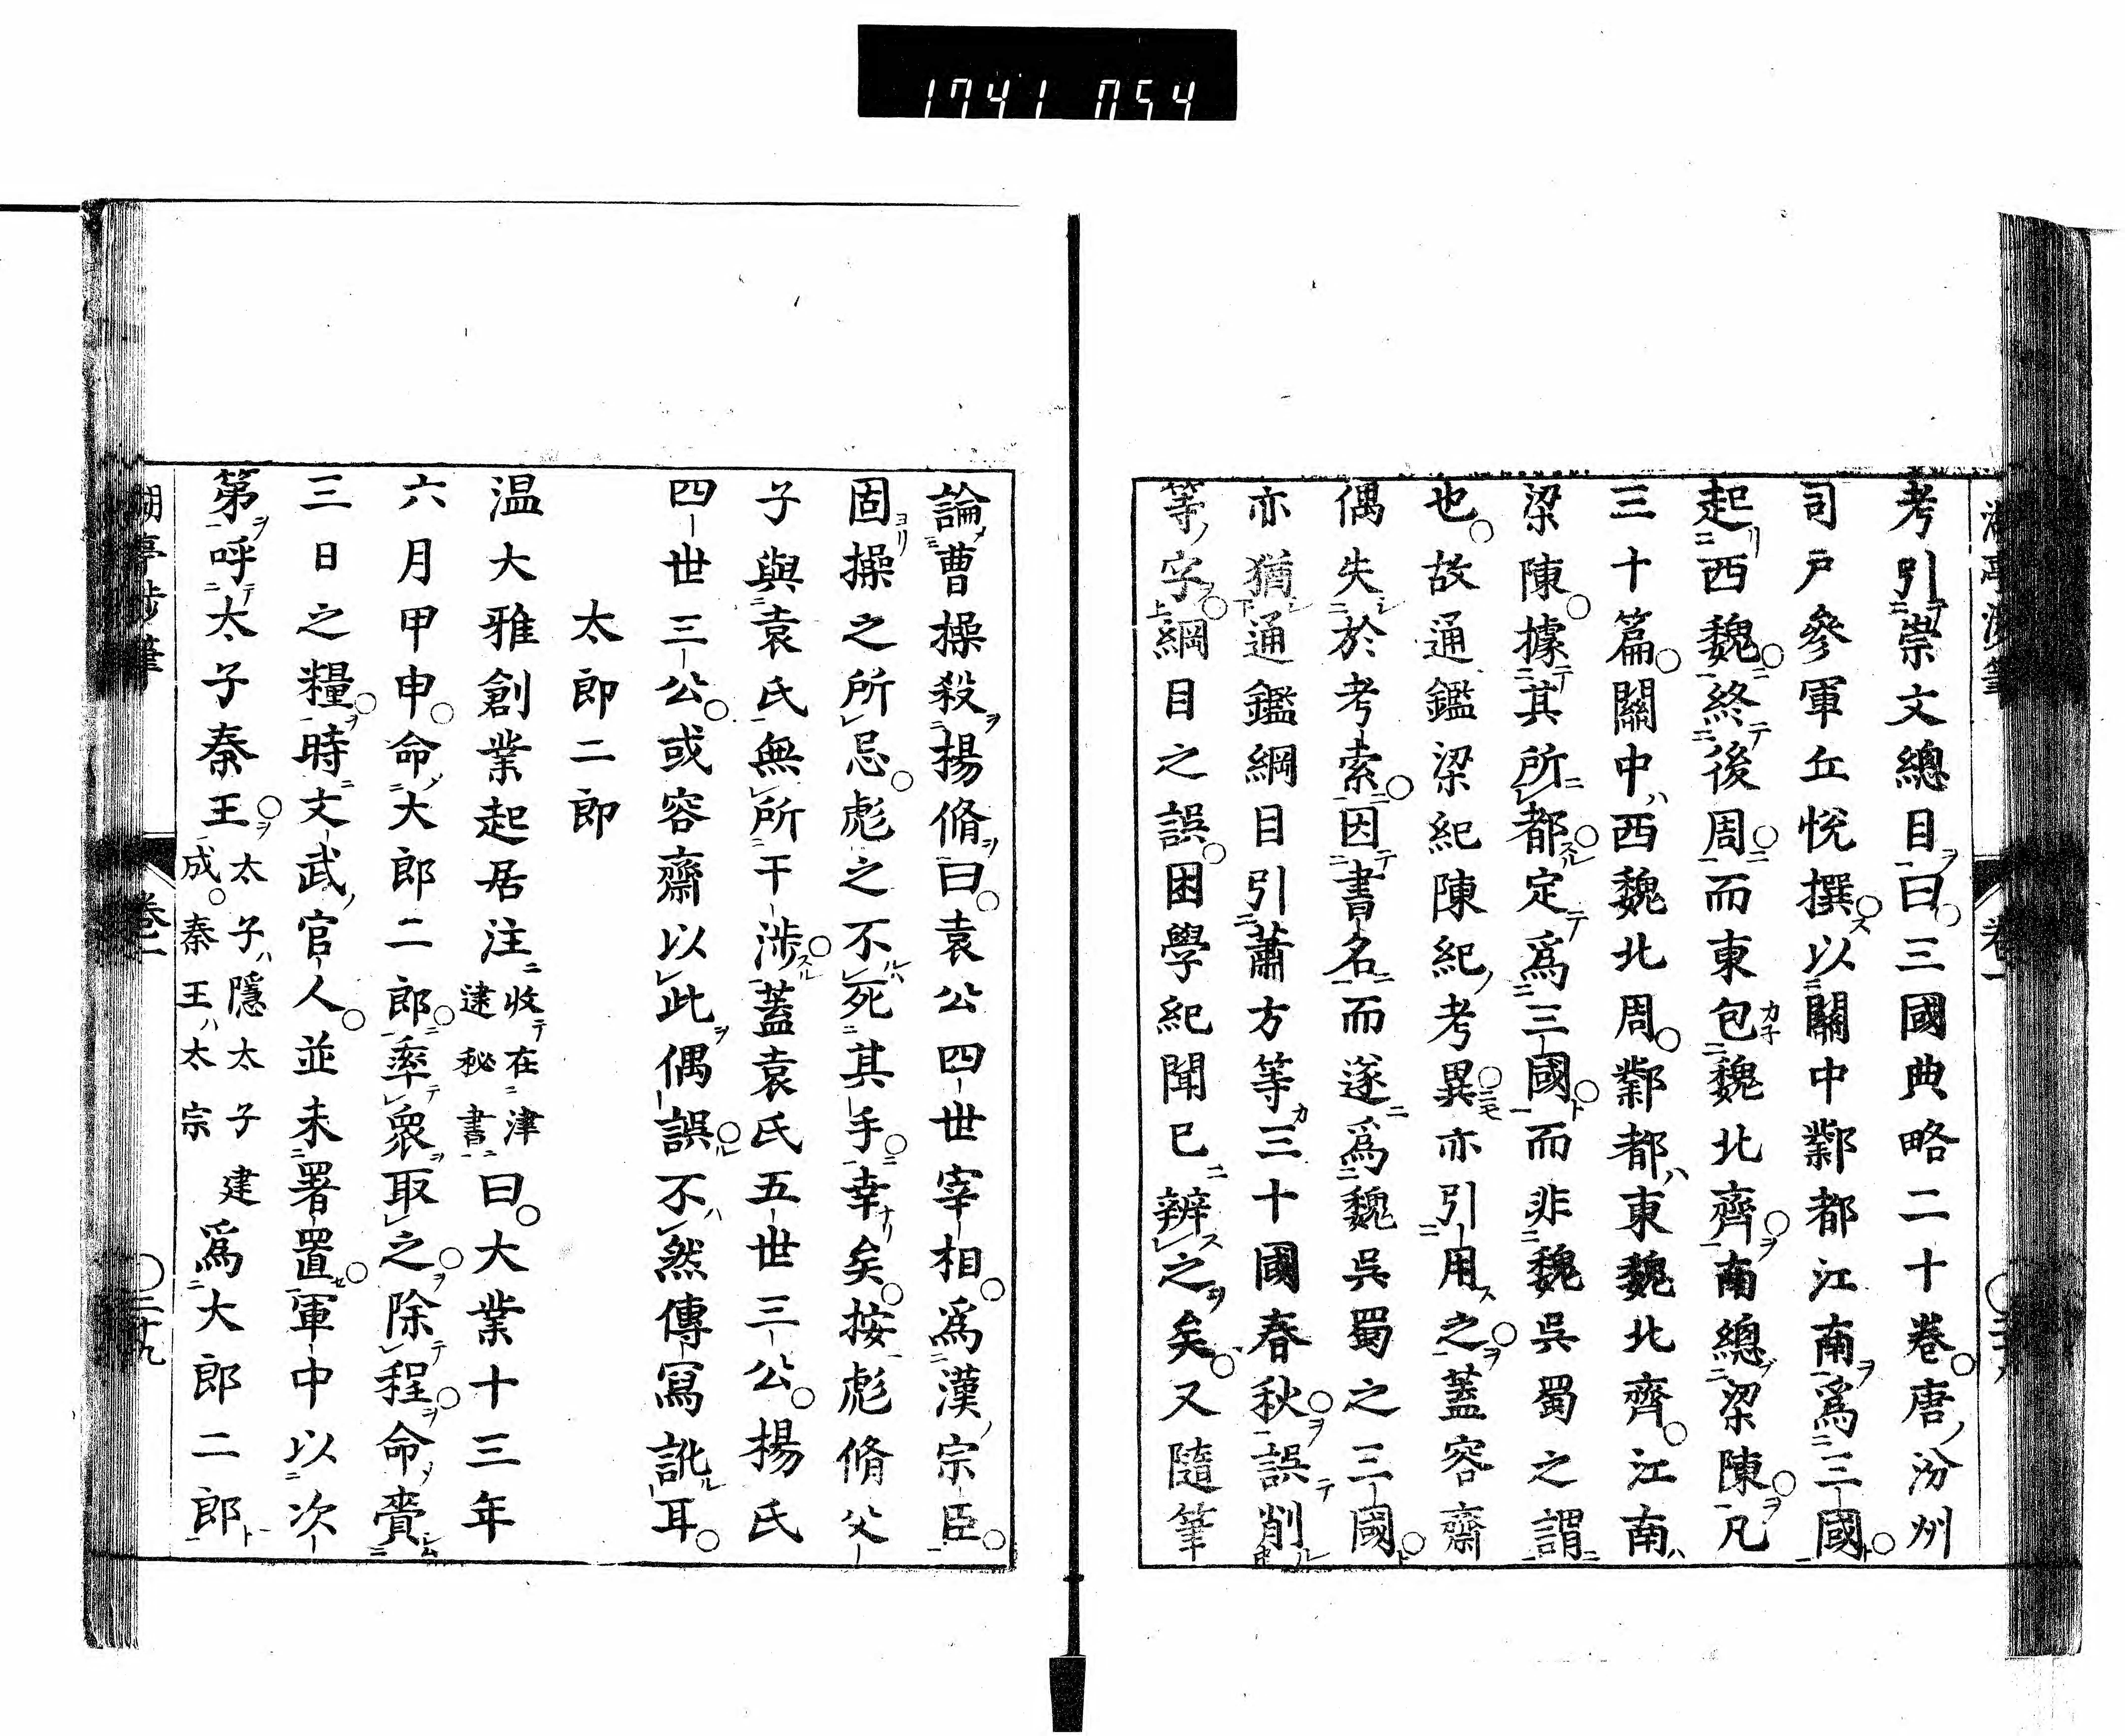 1741 054
考引崇文總目曰三國典略二十卷唐汾州
司戶參軍丘悅撰以關中鄴都江南爲三國
起西魏終後周而東包魏北齊南總梁陳凡
三十篇關中西魏北周鄴都東魏北齊江南
梁陳據其所都定爲三國而非魏吳蜀之謂
也故通鑑梁紀陳紀考異亦引用之蓋容齋
偶失於考索因書名而遂爲魏吳蜀之三國
亦猶通鑑綱目引蕭方等三十國春秋誤削
等字綱目之誤困學紀聞已辨之矣又隨筆
論曹操殺揚脩曰袁公四世宰相爲漢宗臣
固操之所忌彪之不死其手幸矣按彪脩父
子與袁氏無所干涉蓋袁氏五世三公揚氏
四世三公或容齋以此偶誤不然傳寫訛耳
太郎二郎
温大雅創業起居注收在津逮秘書曰大業十三年
六月甲申命大郎二郎率衆取之除程命賷
三日之糧時文武官人並未署置軍中以次
第呼太子秦王太子隱太子建成秦王太宗爲大郎二郎
卷一
二十九